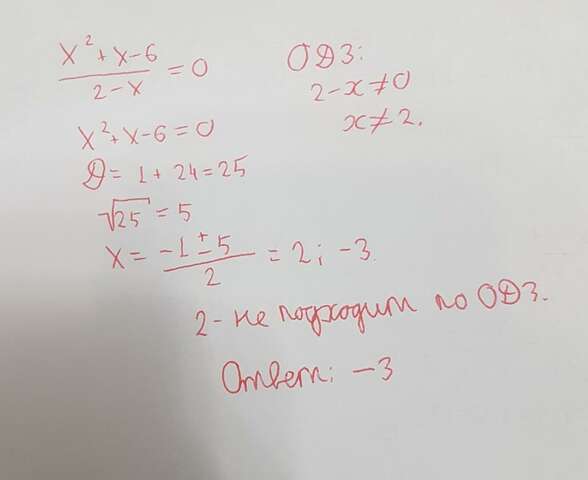 x² + x - 6 / 2 - x = 0
ОДЗ:
2 - x ≠ 0
x ≠ 2.
x² + x - 6 = 0
D = 1 + 24 = 25
√25 = 5
x = -1 ± 5 / 2 = 2; -3
2 - не подходит по ОДЗ.
Ответ: -3